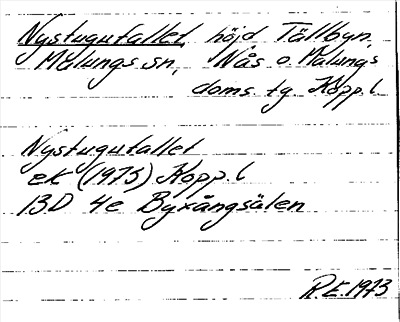 Nystugufallet, höjd, Tällbyn,
Malungs sn, Nås o. Malungs
doms. tg. Kopp. l.
Nystugufallet
ek (1973) Kopp. l
13D 4e Byxångsälen
R.E. 1973